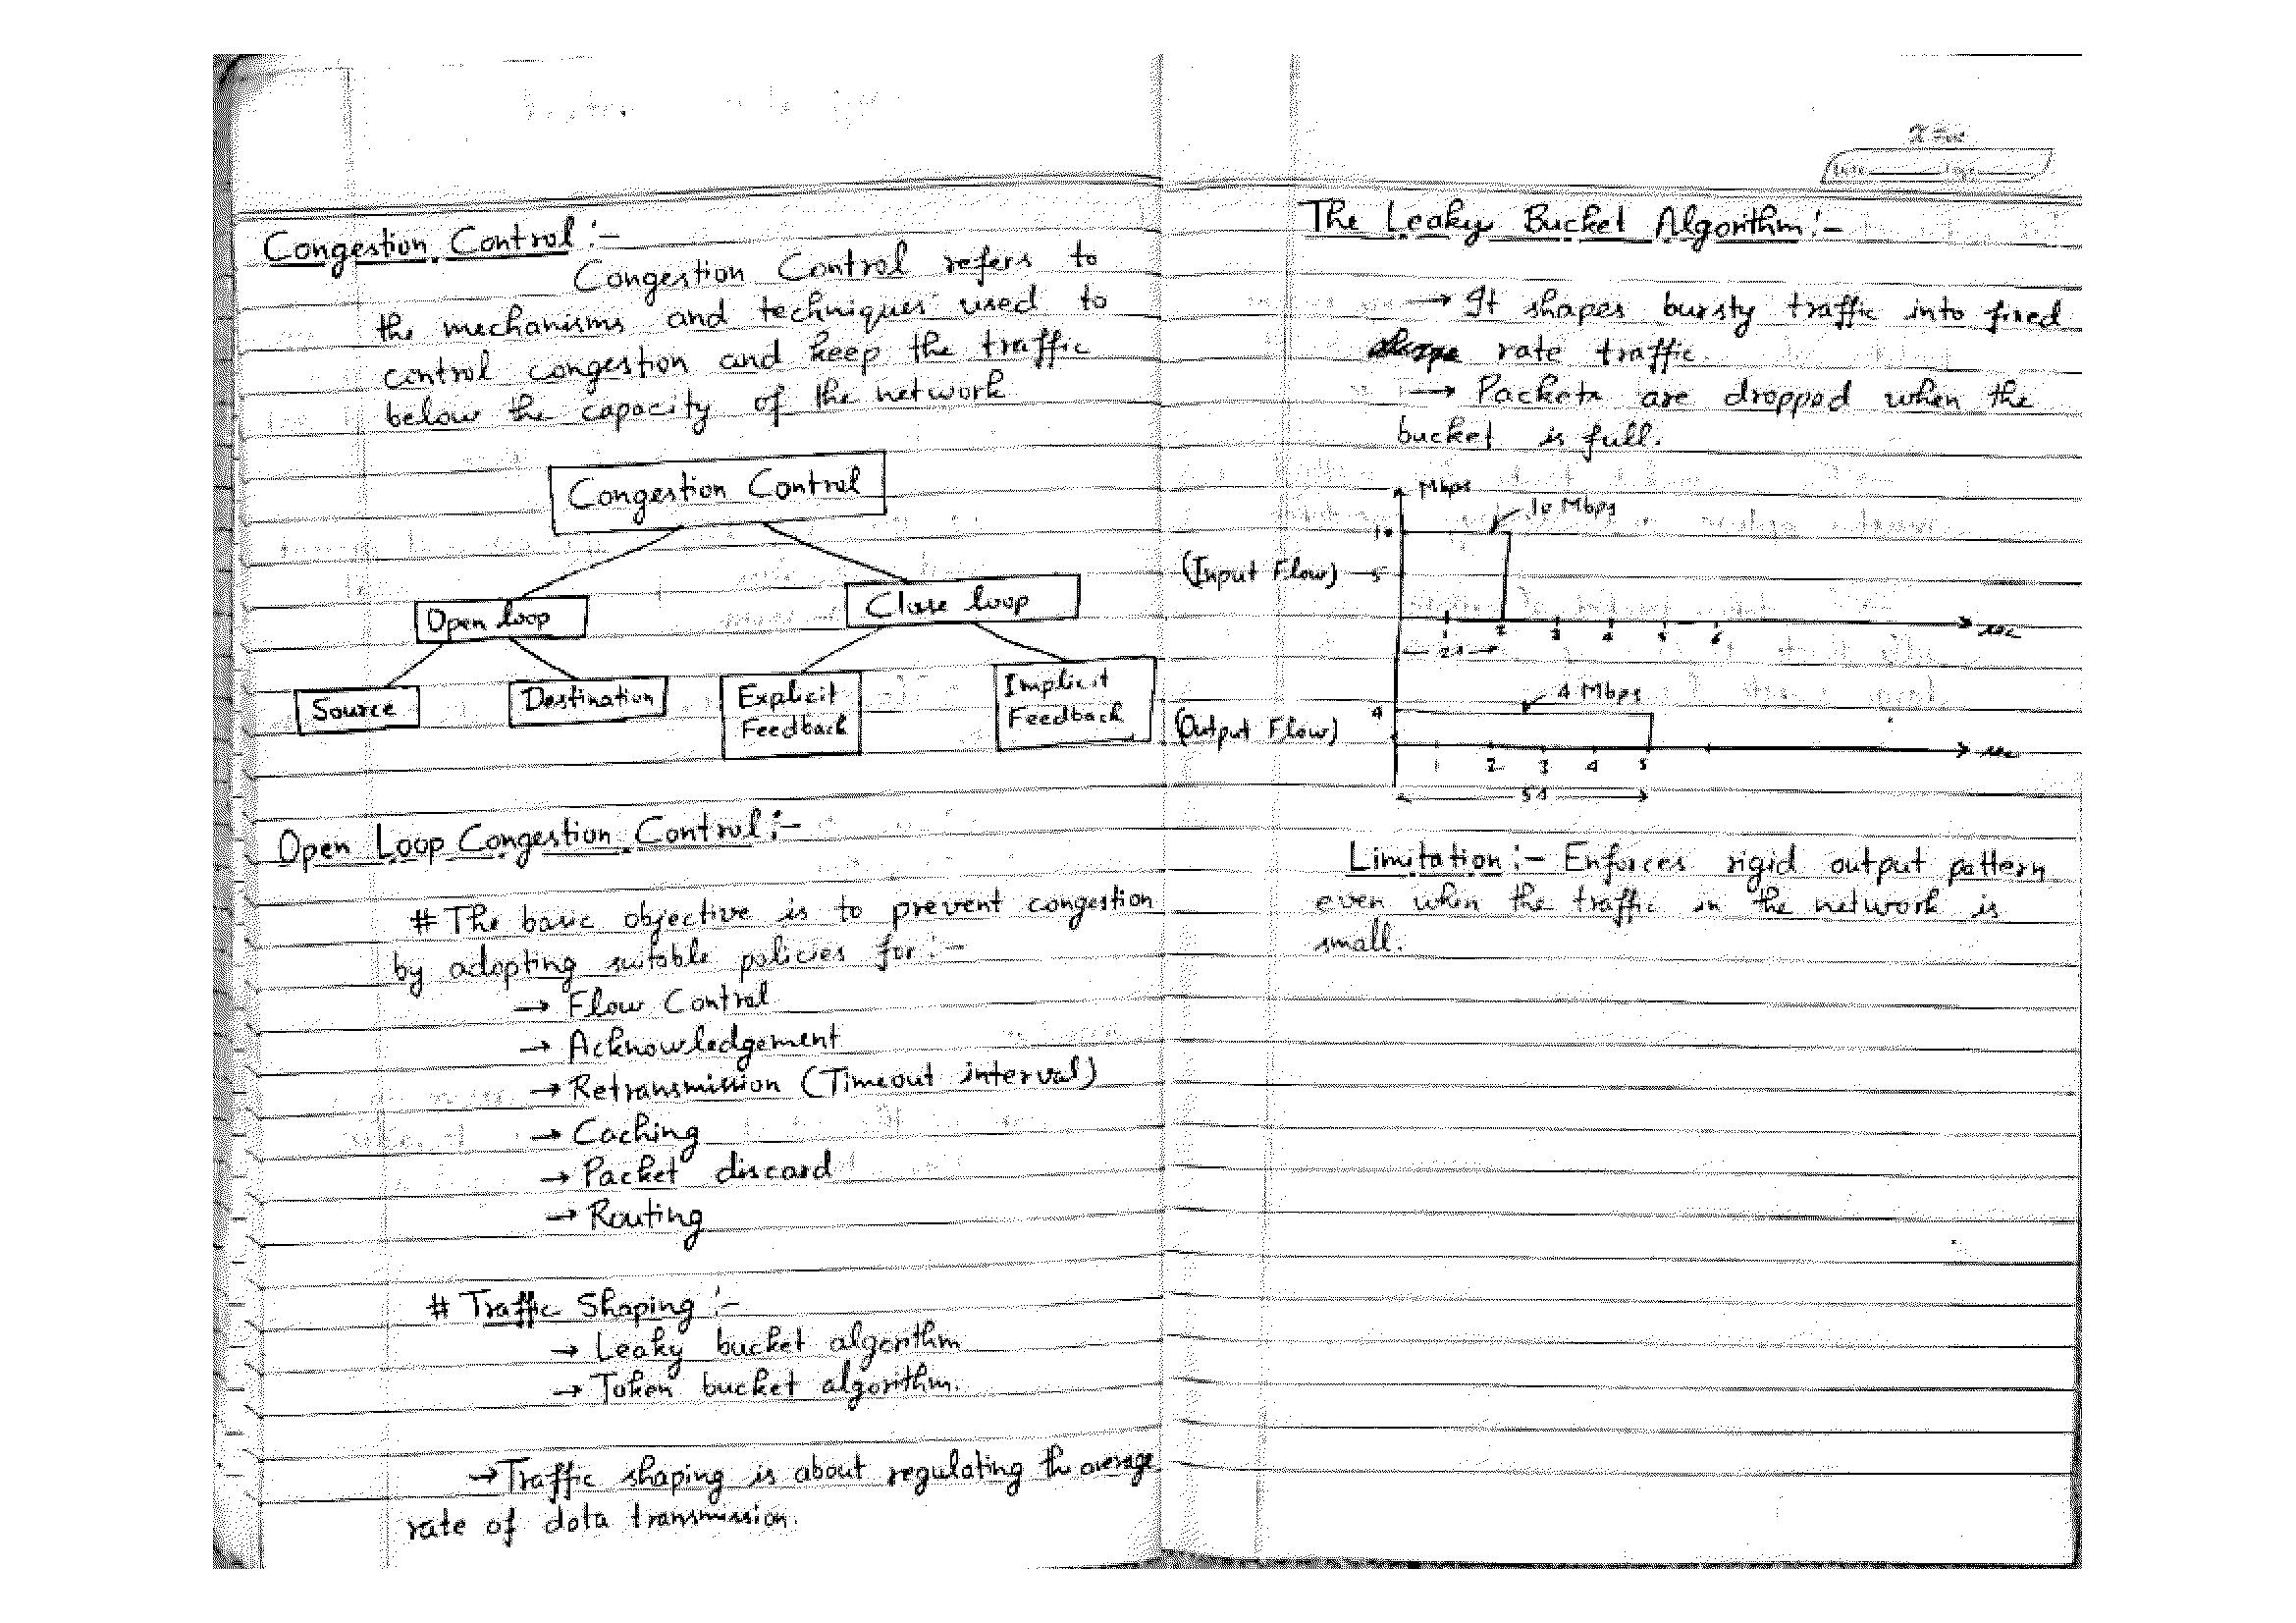 Congestion Control :-
Congestion Control refers to
the mechanisms and techniques used to
control congestion and keep the traffic
below the capacity of the network
Congestion Control
Open loop
Close loop
Source
Destination
Explicit
Feedback
Implicit
Feedback
Open Loop Congestion Control :-
# The basic objective is to prevent congestion
by adopting suitable policies for :-
→ Flow Control
→ Acknowledgement
→ Retransmission (Timeout interval)
→ Caching
→ Packet discard
→ Routing
# Traffic Shaping :-
→ Leaky bucket algorithm
→ Token bucket algorithm.
→ Traffic shaping is about regulating the average
rate of data transmission.
The Leaky Bucket Algorithm :-
→ It shapes bursty traffic into fixed
rate traffic.
→ Packets are dropped when the
bucket is full.
Mbps
10 Mbps
10
(Input Flow) 5
1 2 3 4 5 6 sec
2s
4 Mbps
4
(Output Flow)
sec
1 2 3 4 5
5s
Limitation :- Enforces rigid output pattern
even when the traffic in the network is
small.